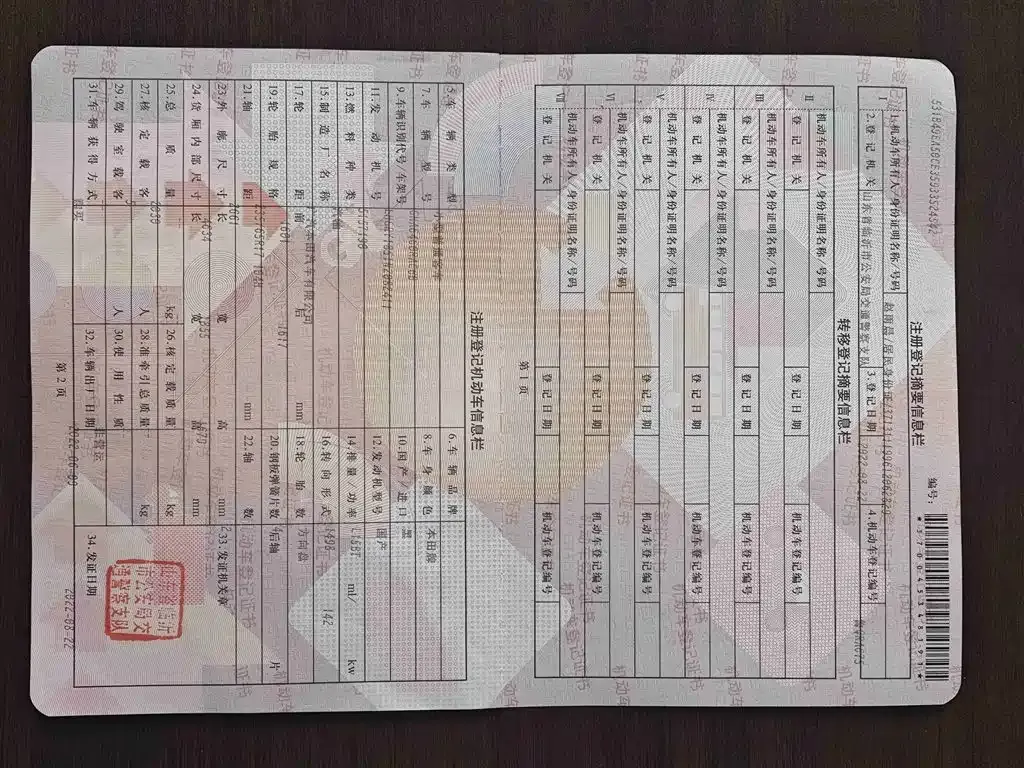 注册登记摘要信息栏
编号：
Ⅰ
1.机动车所有人/身份证明名称/号码
2.登记机关
山东省临沂市公安局交通警察支队
3.登记日期
2022-08-22
4.机动车登记编号
转移登记摘要信息栏
Ⅱ
机动车所有人/身份证明名称/号码
登记机关
登记日期
机动车登记编号
Ⅲ
机动车所有人/身份证明名称/号码
登记机关
登记日期
机动车登记编号
Ⅳ
机动车所有人/身份证明名称/号码
登记机关
登记日期
机动车登记编号
Ⅴ
机动车所有人/身份证明名称/号码
登记机关
登记日期
机动车登记编号
Ⅵ
机动车所有人/身份证明名称/号码
登记机关
登记日期
机动车登记编号
Ⅶ
机动车所有人/身份证明名称/号码
登记机关
登记日期
机动车登记编号
第1页
注册登记机动车信息栏
5.车辆类型
小型普通客车
6.车辆品牌
本田牌
7.车辆型号
8.车身颜色
黑
9.车辆识别代号/车架号
10.国产/进口
国产
11.发动机号
12.发动机型号
13.燃料种类
汽油
14.排量/功率
1498 ml/ 142 kw
15.制造厂名称
16.转向形式
方向盘
17.轮距
前 1601 后 1617 mm
18.轮胎数
4
19.轮胎规格
20.钢板弹簧片数
后轴 片
21.轴距
2661 mm
22.轴数
2
23.外廓尺寸
长 4634 宽 1855 高 1679 mm
33.发证机关章
24.货厢内部尺寸
长 宽 高 mm
25.总质量
2030 kg
26.核定载质量
kg
27.核定载客
5 人
28.准牵引总质量
kg
29.驾驶室载客
人
30.使用性质
非营运
31.车辆获得方式
购买
32.车辆出厂日期
34.发证日期
2022-08-22
第2页